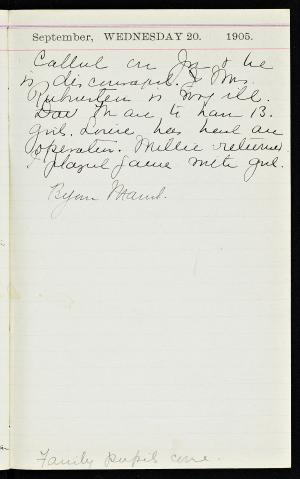 September, WEDNESDAY 20. 1905.
Called on & he
is discouraged. & Mrs.
is very ill.
to have 13.
girls. Louise has had an
operation. Millie returned
& played game with girl.
Byron
Family pupils come.